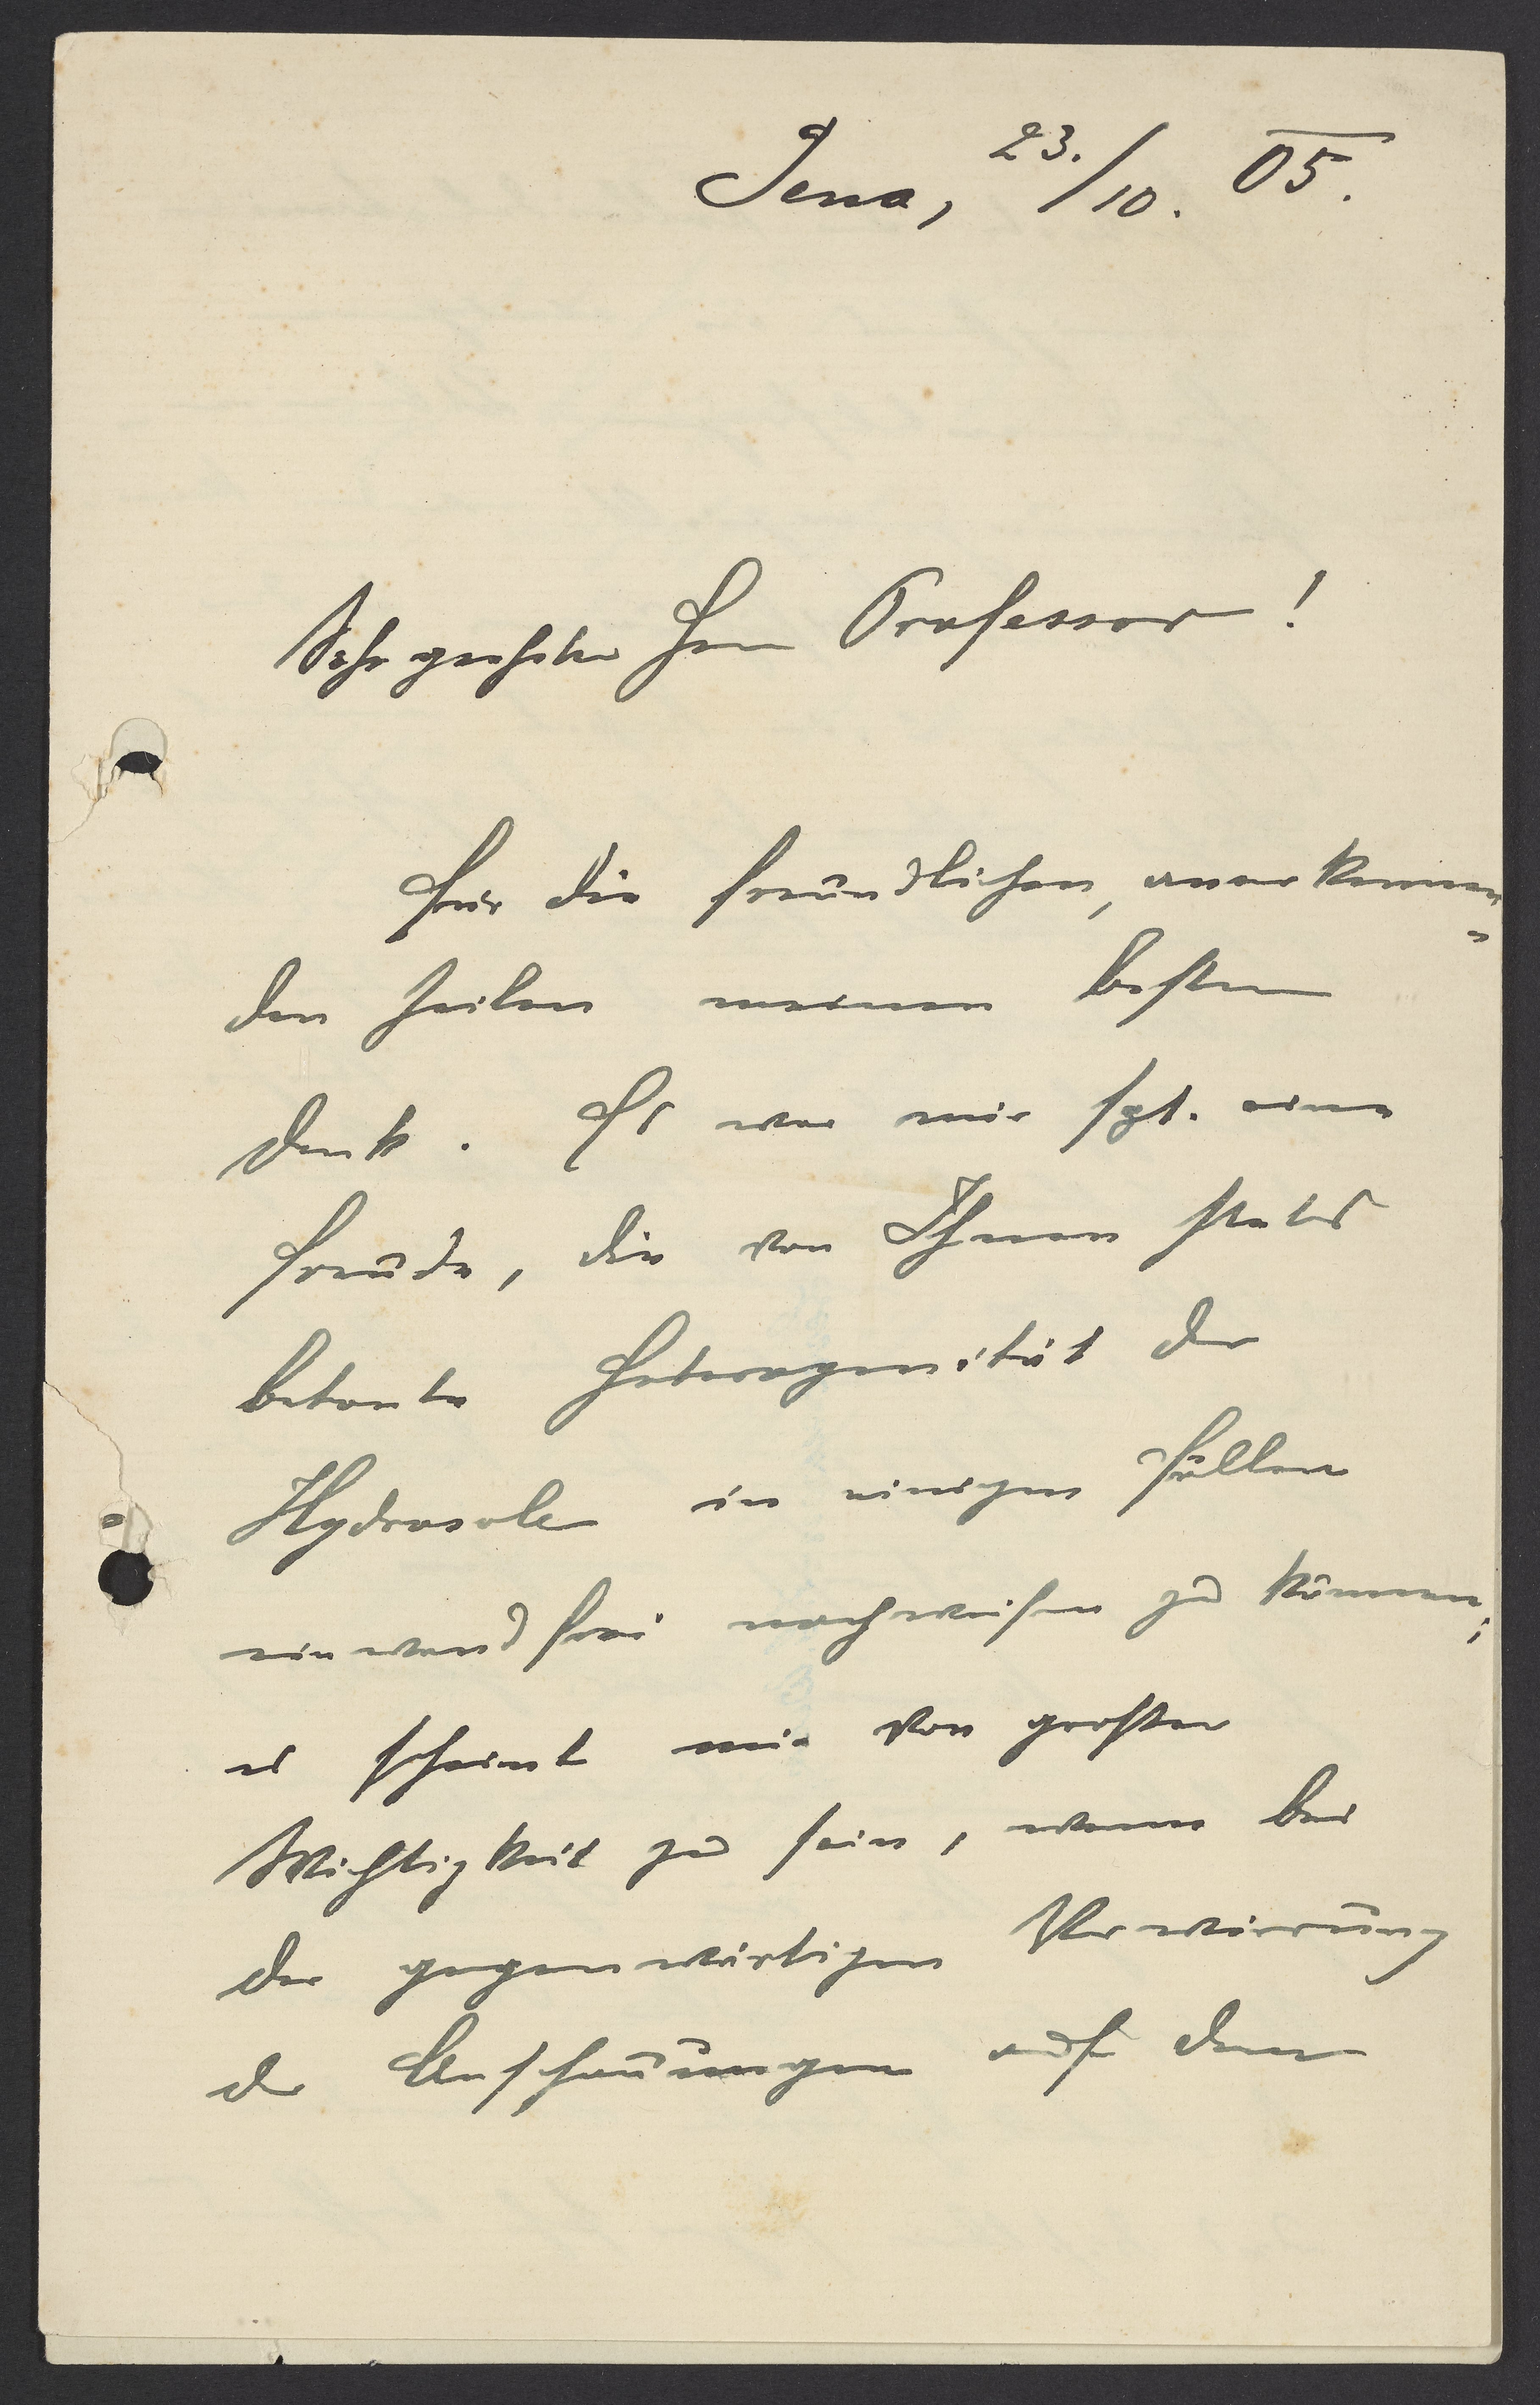 Jena, 23./10. 05.
Sehr geehrter Herr Professor!
Für die freundlichen, anerkennen=
den Zeilen meinen besten
Dank. Es war mir sgt. eine
Freude, die von Ihnen stets
betonte Heterogenität der
Hydrosole in einigen Fällen
einwandfrei nachweisen zu können;
es scheint mir von großer
Wichtigkeit zu sein, wenn bei
der gegenwärtigen Verwirrung
der Anschauungen auf dem